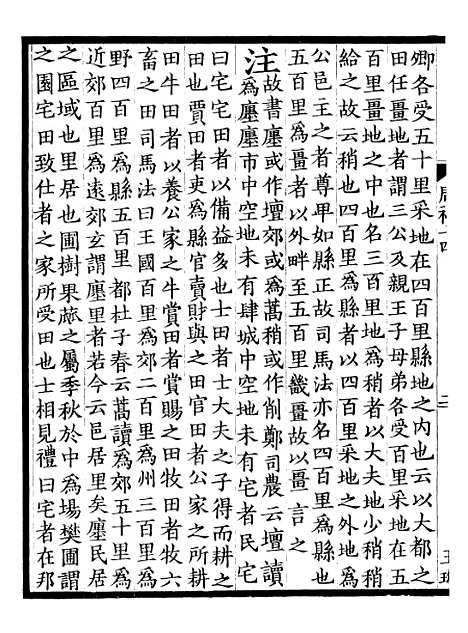 卿各受五十里采地在四百里縣地之内也云以大都之
田任畺地者謂三公及親王子母弟各受百里采地在五
百里畺地之中也名三百里地爲稍者以大夫地少稍稍
給之故云稍也四百里爲縣者以四百里采地之外地爲
公邑主之者尊卑如縣正故司馬法亦名四百里爲縣也
五百里爲畺者以外畔至五百里畿畺故以畺言之
注故書廛或作壇郊或爲蒿稍或作削鄭司農云壇讀
爲廛廛市中空地未有肆城中空地未有宅者民宅
曰宅宅田者以備益多也士田者士大夫之子得而耕之
田也賈田者吏爲縣官賣財與之田官田者公家之所耕
田牛田者以養公家之牛賞田者賞賜之田牧田者牧六
畜之田司馬法曰王國百里爲郊二百里爲州三百里爲
野四百里爲縣五百里都杜子春云蒿讀爲郊五十里爲
近郊百里爲遠郊玄謂廛里者若今云邑居里矣廛民居
之區域也里居也圃樹果蓏之屬季秋於中爲場樊圃謂
之園宅田致仕者之家所受田也士相見禮曰宅者在邦